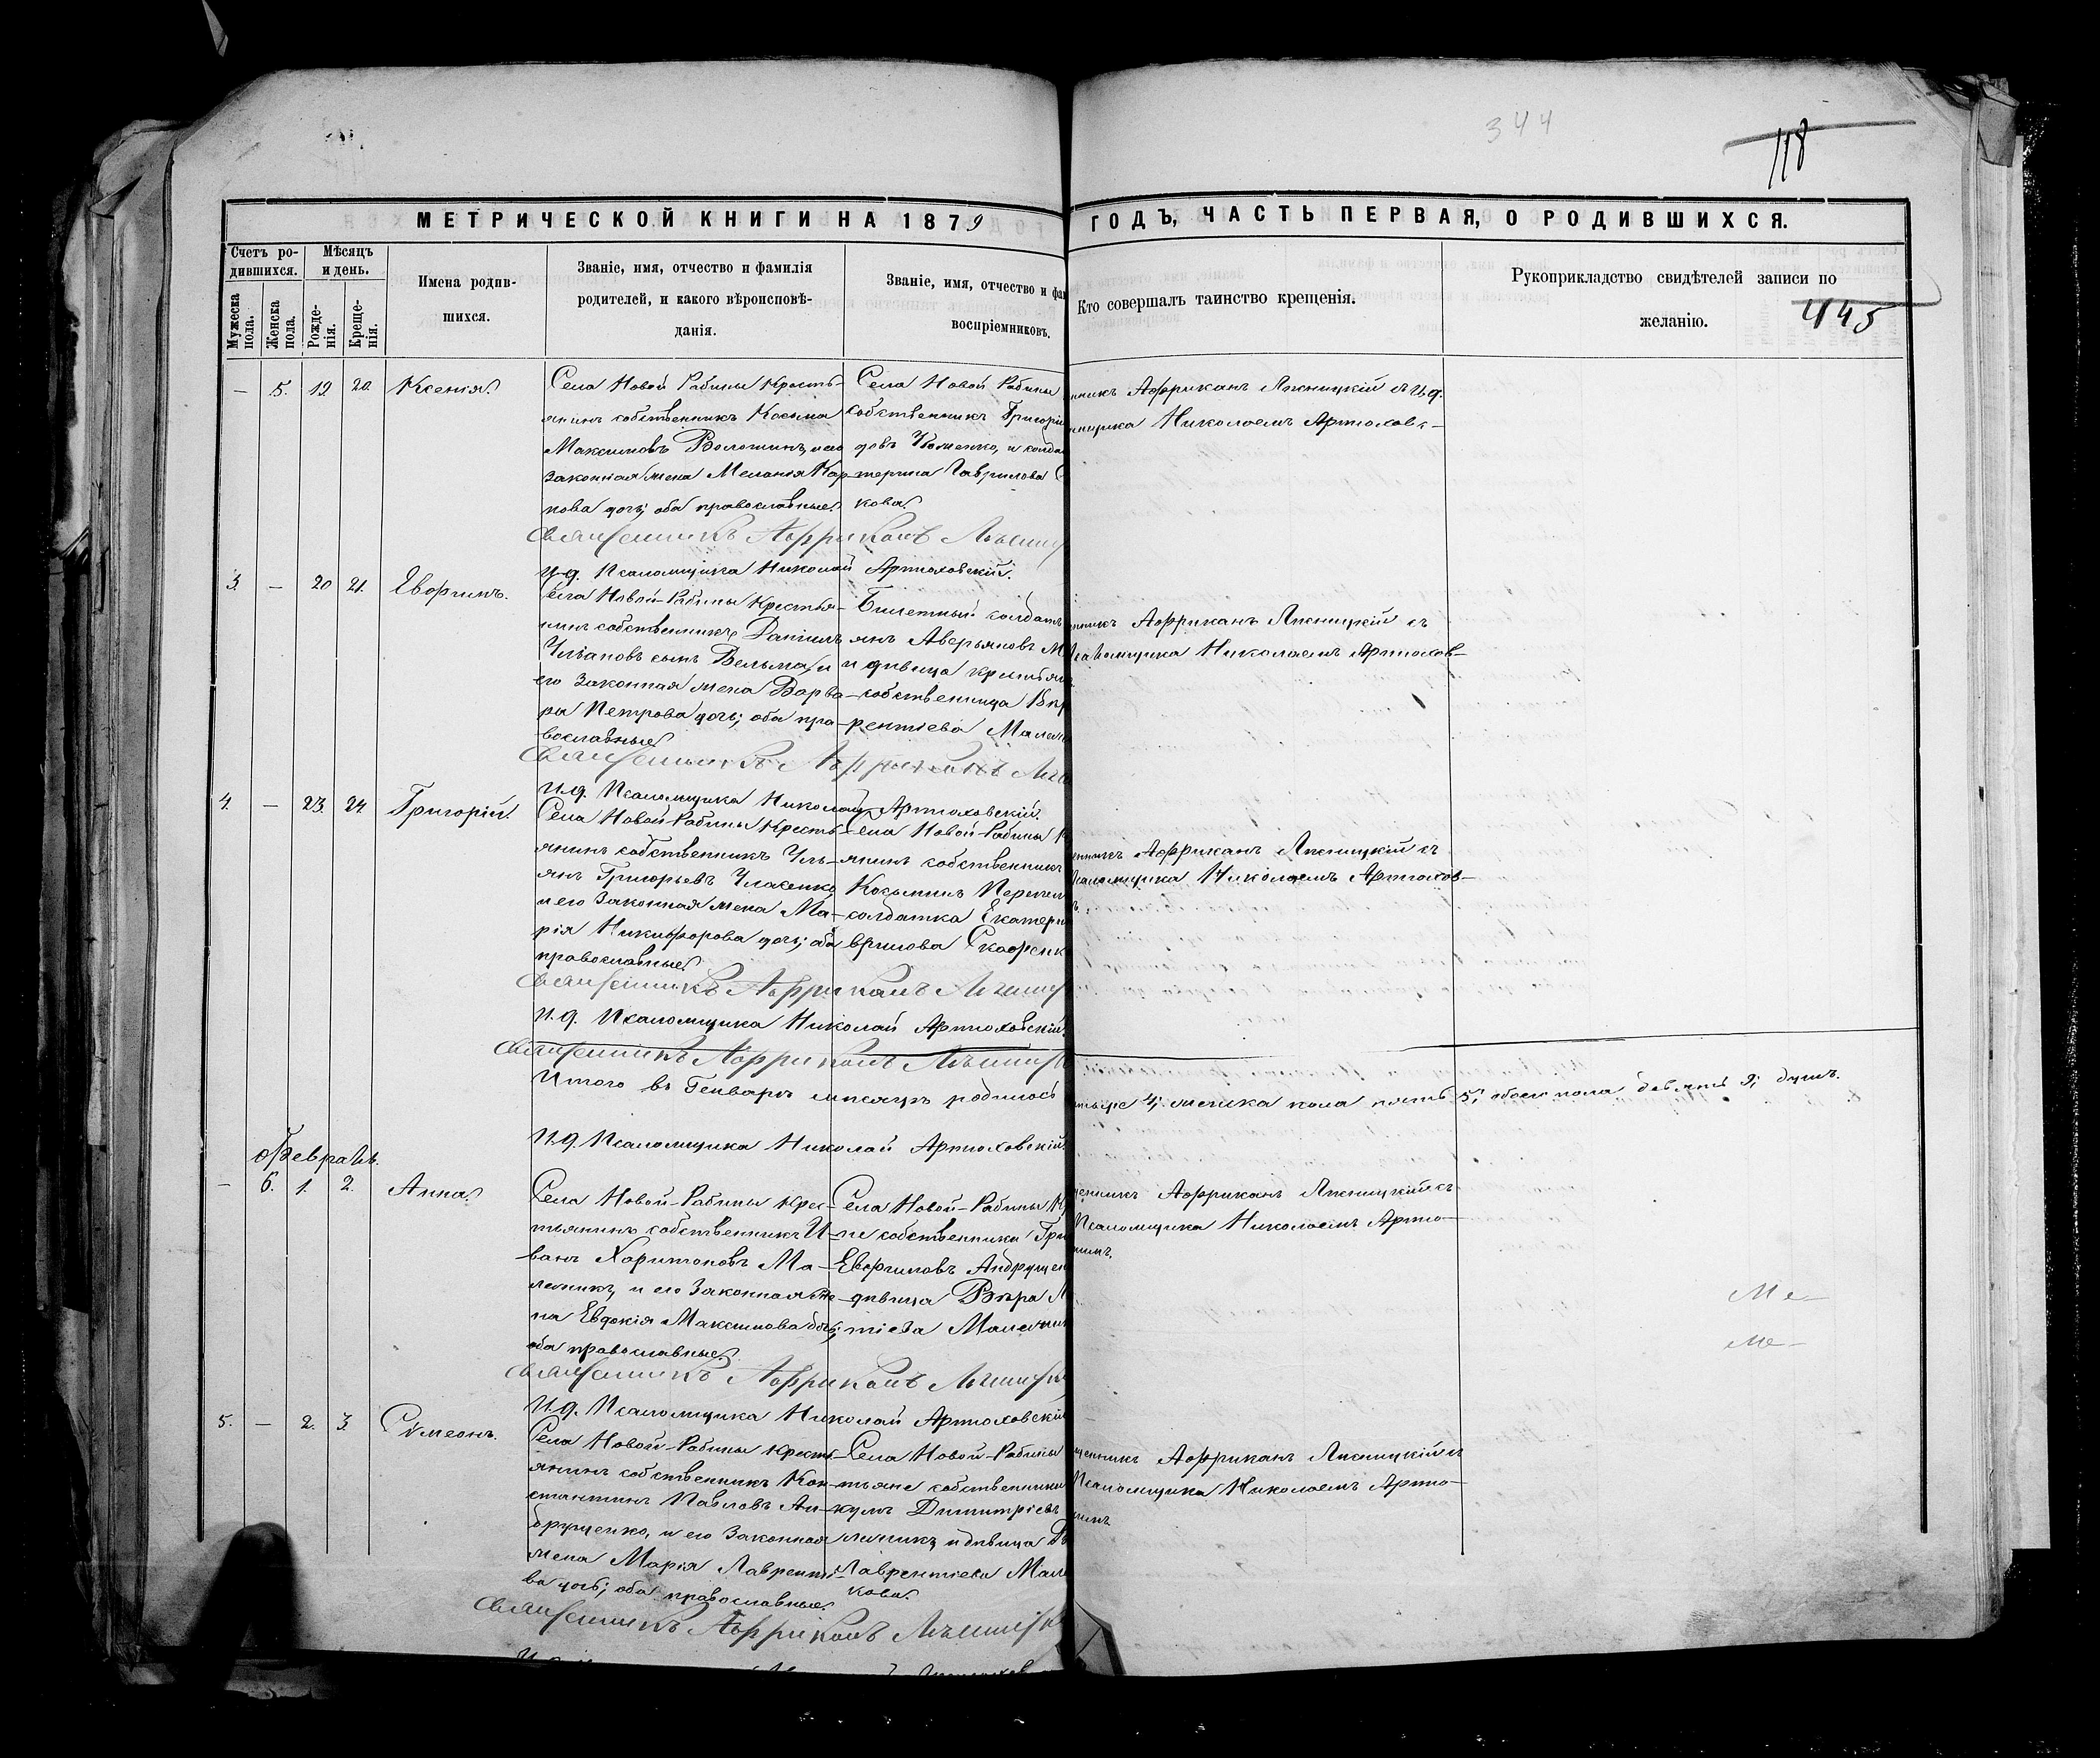 344
118
МЕТРИЧЕСКОЙ КНИГИ НА 1879 ГОДЪ, ЧАСТЬ ПЕРВАЯ, О РОДИВШИХСЯ.
Счетъ ро-
дившихся.
Мужеска пола.
Женска пола.
Мѣсяцъ
и день.
Рожде-
нія.
Креще-
нія.
Имена родив-
шихся.
Званіе, имя, отчество и фамилія
родителей, и какого вѣроисповѣ-
данія.
Званіе, имя, отчество и фам
воспріемниковъ.
Кто совершалъ таинство крещенія.
Рукоприкладство свидѣтелей записи по
желанію.
445
— 5. 19. 20. Ксенія.
Села Новой Рабины Кресть-
янинъ собственникъ Косьма
Максимовъ Волошинъ, и его
законная жена Меланія Кар-
пова дочь; оба православные.
Села Новой Рабины
собственникъ Григорі
довъ
терина Гаврилова
кова.
Африканъ
Николаемъ Артюховс-
Священникъ Африканъ
И. д. Псаломщика Николай Артюховскій.
3. — 20 21. Евфимъ.
Села Новой-Рабины Крестья-
нинъ собственникъ Даніилъ
сынъ Вельма, и
его законная жена Варва-
ра Петрова дочь; оба пра-
вославные.
Билетный солдатъ
янъ Аверьяновъ М
и дѣвица крестьян
собственница Вѣр
рентіева Мален
Африканъ съ
Псаломщика Николаемъ Артюхов-
Священникъ Африканъ
И. д. Псаломщика Николай Артюховскій.
4. — 23. 24. Григорій.
Села Новой-Рабины Кресть-
янинъ собственникъ Уль-
янъ Григорьевъ
и его законная жена Ма-
рія Никифорова дочь; оба
православные.
Села Новой-Рабины К
янинъ собственникъ
Косьминъ
солдатка Екатери
врилова
Африканъ съ
Псаломщика Николаемъ Артюхов-
Священникъ Африканъ
И. д. Псаломщика Николай Артюховскій.
Священникъ Африканъ
Итого въ Генварѣ мѣсяцѣ родилось
тыре 4; женска пола пять 5; обоего пола девять 9; душъ.
И. д. Псаломщика Николай Артюховскій
Февраль.
— 6. 1. 2. Анна.
Села Новой-Рабины Крес-
тьянинъ собственникъ И-
ванъ Харитоновъ Ма-
леникъ, и его законная же-
на Евдокія Максимова дочь;
оба православные.
Села Новой-Рабины Кр
не собственники Гри
Евфимовъ Андрущен
дѣвица Вѣра Л
тіева Мален
Африканъ съ
Псаломщика Николаемъ Артю-
Ме-
Ме-
Священникъ Африканъ
И. д. Псаломщика Николай Артюховскій
5. — 2. 3. Сѵмеонъ.
Села Новой-Рабины Кресть-
янинъ собственникъ Кон-
стантинъ Павловъ Ан-
друщенко, и его законная
жена Марія Лавренті-
ва дочь; оба православные.
Села Новой-Рабины
тьяне собственники
Димитріевъ
леникъ, и дѣвица В
Лаврентіева Мал
кова.
Африканъ съ
Псаломщика Николаемъ Артю-
Священникъ Африканъ